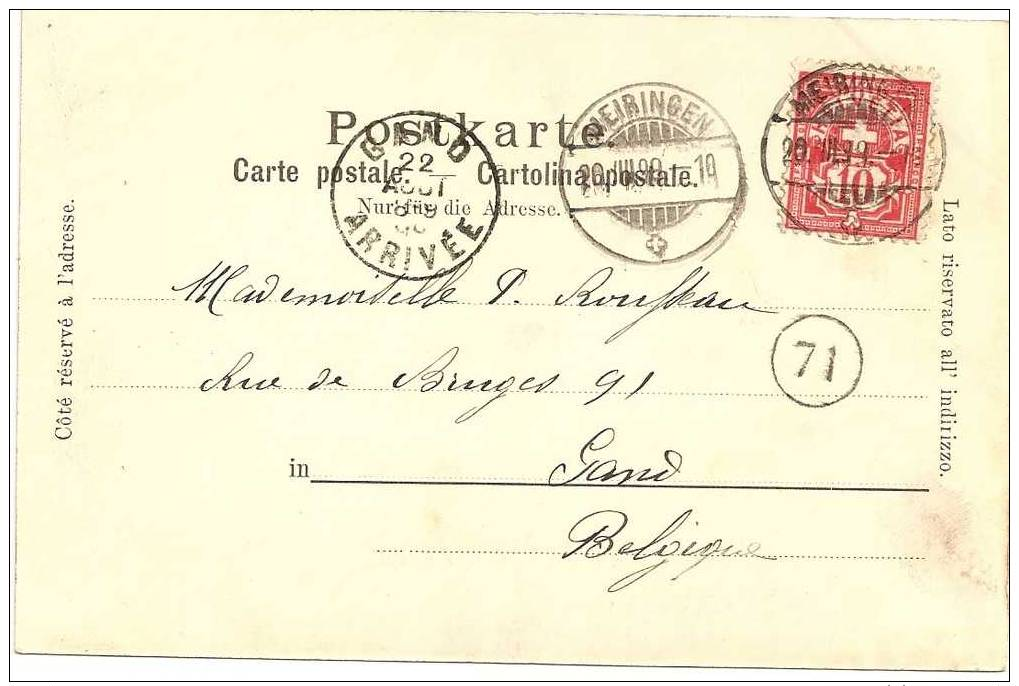 Postkarte.
Carte postale. — Cartolina postale.
Nur für die Adresse.
GAND
22
AOUT
ARRIVÉE
MEIRINGEN
20. VIII. 99. – 19
MEIRIN
20. VIII. 99. –
10
Côté réservé à l'adresse.
Lato riservato all' indirizzo.
Mademoiselle P. Rousseau
Rue de Bruges 91
71
in Gand
Belgique